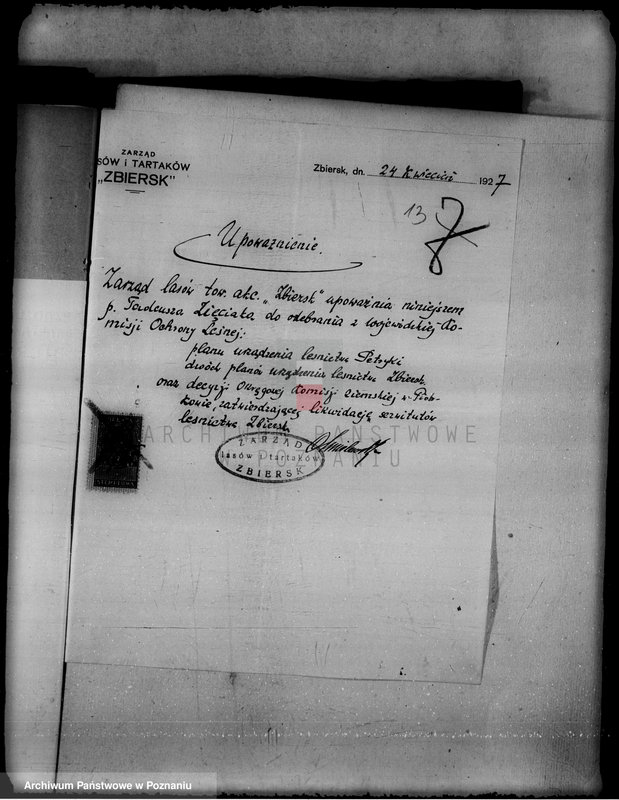 ZARZĄD
SÓW i TARTAKÓW
„ZBIERSK"
Zbiersk, dn. 24 Kwiecień 1927
13
7
Upoważnienie.
Zarząd lasów tow. akc. „Zbiersk" upoważnia niniejszem
p. Tadeusza Zięciaka do odebrania z Wojewódzkiej Ko-
misji Ochrony Leśnej:
planu urządzenia leśnictwa Petryki
dwóch planów urządzenia leśnictwa Zbiersk
oraz decyzji Okręgowej Komisji Ziemskiej w Piotr-
kowie, zatwierdzającej likwidację serwitutów
leśnictwa Zbiersk.
ZARZĄD
lasów i tartaków
ZBIERSK
ARCHIWUM PAŃSTWOWE
W POZNANIU
Archiwum Państwowe w Poznaniu